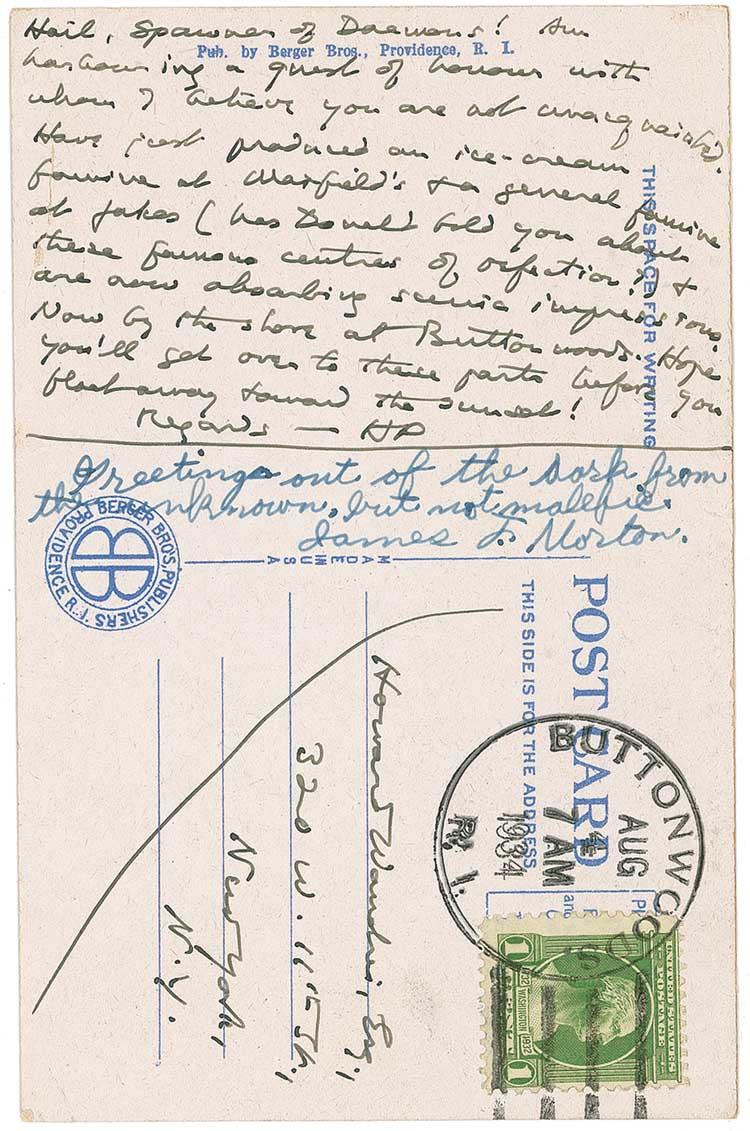 Hail, Spawner of Daemons! Am
Pub. by Berger Bros., Providence, R. I.
harbouring a guest of honour with
whom I believe you are not unacquainted.
Have just produced an ice-cream
famine at Maxfield's & a general famine
at Jakes (has Donald told you about
these famous centres of refection?) &
are now absorbing scenic impressions.
Now by the shore at Buttonwoods. Hope
you'll get over to these parts before you
float away toward the sunset!
Regards — HP
THIS SPACE FOR WRITING
Greetings out of the dark from
the unknown, but not malefic.
James F. Morton.
BERGER BRO'S, PUBLISHERS PROVIDENCE R.I.
BB
MADE IN USA
POST CARD
THIS SIDE IS FOR THE ADDRESS
Howard Wandrei, Esq.,
320 W. 11th St.,
New York,
N.Y.
BUTTONWOODS.
AUG
7 AM
1934
R. I.
UNITED STATES
POSTAGE
1932 WASHINGTON 1932
1 CENT 1